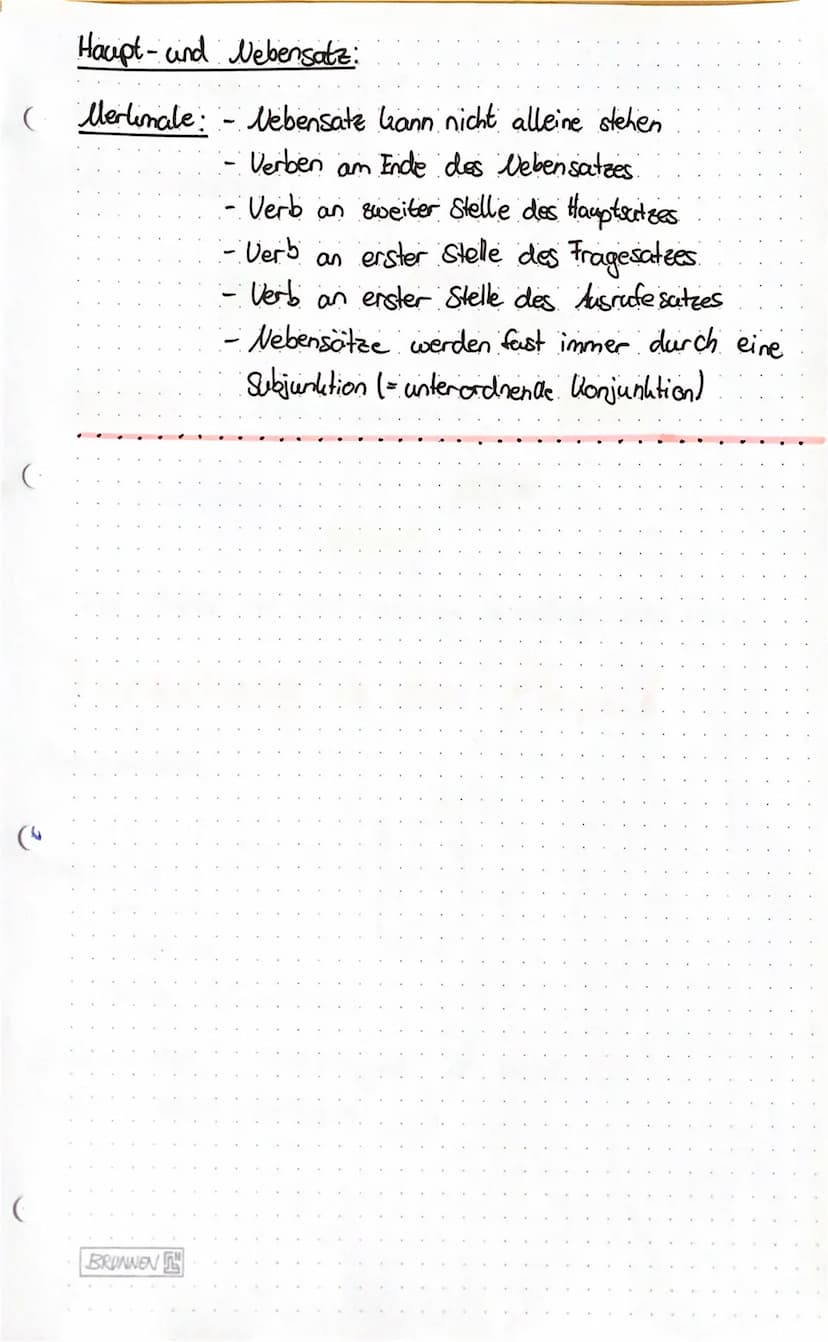 Haupt- und Nebensatz:
Merkmale: - Nebensatz kann nicht alleine stehen
- Verben am Ende des Nebensatzes
- Verb an zweiter Stelle des Hauptsatzes
- Verb an erster Stelle des Fragesatzes
- Verb an erster Stelle des Ausrufesatzes
- Nebensätze werden fast immer durch eine
Subjunktion (= unterordnende Konjunktion)
BRUNNEN